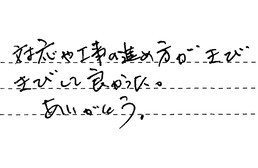 対応や工事の進め方がきび
きびして良かった。
ありがとう。